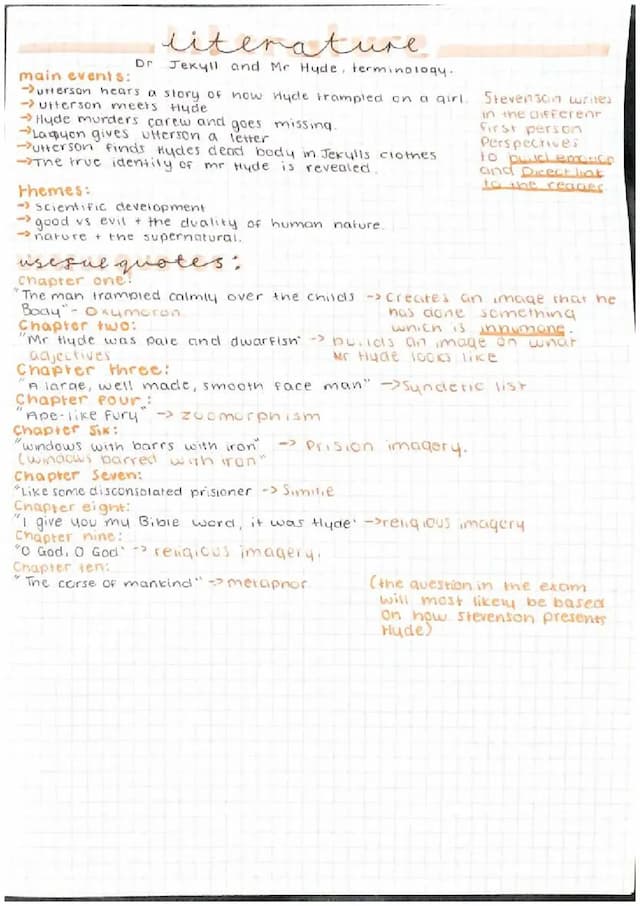 literature
Dr Jekyll and Mr Hyde, terminology.
main events:
→Utterson hears a story of how Hyde trampled on a girl.
→Utterson meets Hyde
→Hyde murders carew and goes missing.
→Lanyon gives utterson a letter
→Utterson finds Hydes dead body in Jekylls clothes
→The true identity of mr Hyde is revealed.
Stevenson writes
in the different
first person
Perspectives
to build emotion
and Direct link
to the reader
themes:
→ scientific development
→ good vs evil + the duality of human nature.
→ nature + the supernatural.
useful quotes:
Chapter one:
"The man trampled calmly over the childs → creates an image that he
Body" - Oxymoron. has done something
which is inhumane.
Chapter two:
"Mr Hyde was pale and dwarfish" → builds an image on what
adjectives Mr Hyde looks like
Chapter three:
"A large, well made, smooth face man" → Syndetic list
Chapter four:
"Ape-like fury" → zoomorphism
Chapter Six:
"windows with barrs with iron" → Prision imagery.
(windows barred with iron"
Chapter Seven:
"Like some disconsolated prisioner → Similie
Chapter eight:
"I give you my Bible word, it was Hyde' → religious imagery
Chapter nine:
"O God, O God' → religious imagery.
Chapter ten:
"The corse of mankind" → metaphor
(the question in the exam
will most likely be based
on how Stevenson presents
Hyde)